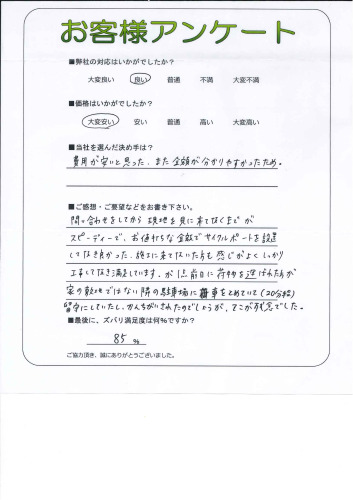 お客様アンケート
■弊社の対応はいかがでしたか?
大変良い 良い 普通 不満 大変不満
■価格はいかがでしたか?
大変安い 安い 普通 高い 大変高い
■当社を選んだ決め手は?
費用が安いと思った、また金額が分かりやすかったため。
■ご感想・ご要望などをお書き下さい。
問い合わせをしてから現地を見に来てくるまでが
スピーディーで、お値打ちな金額でサイクルポートを設置
してなき良かった。施工に来て下さった方も感じがよくしっかり
工事して下さき満足しています。が 1点前日に荷物を運ばれた方が
家の敷地ではない隣の駐車場に車をとめていて(20分始)
守にしていたし、かんちがいされたのでしょうが、そこが残念でした。
■最後に、ズバリ満足度は何%ですか?
85 %
ご協力頂き、誠にありがとうございました。